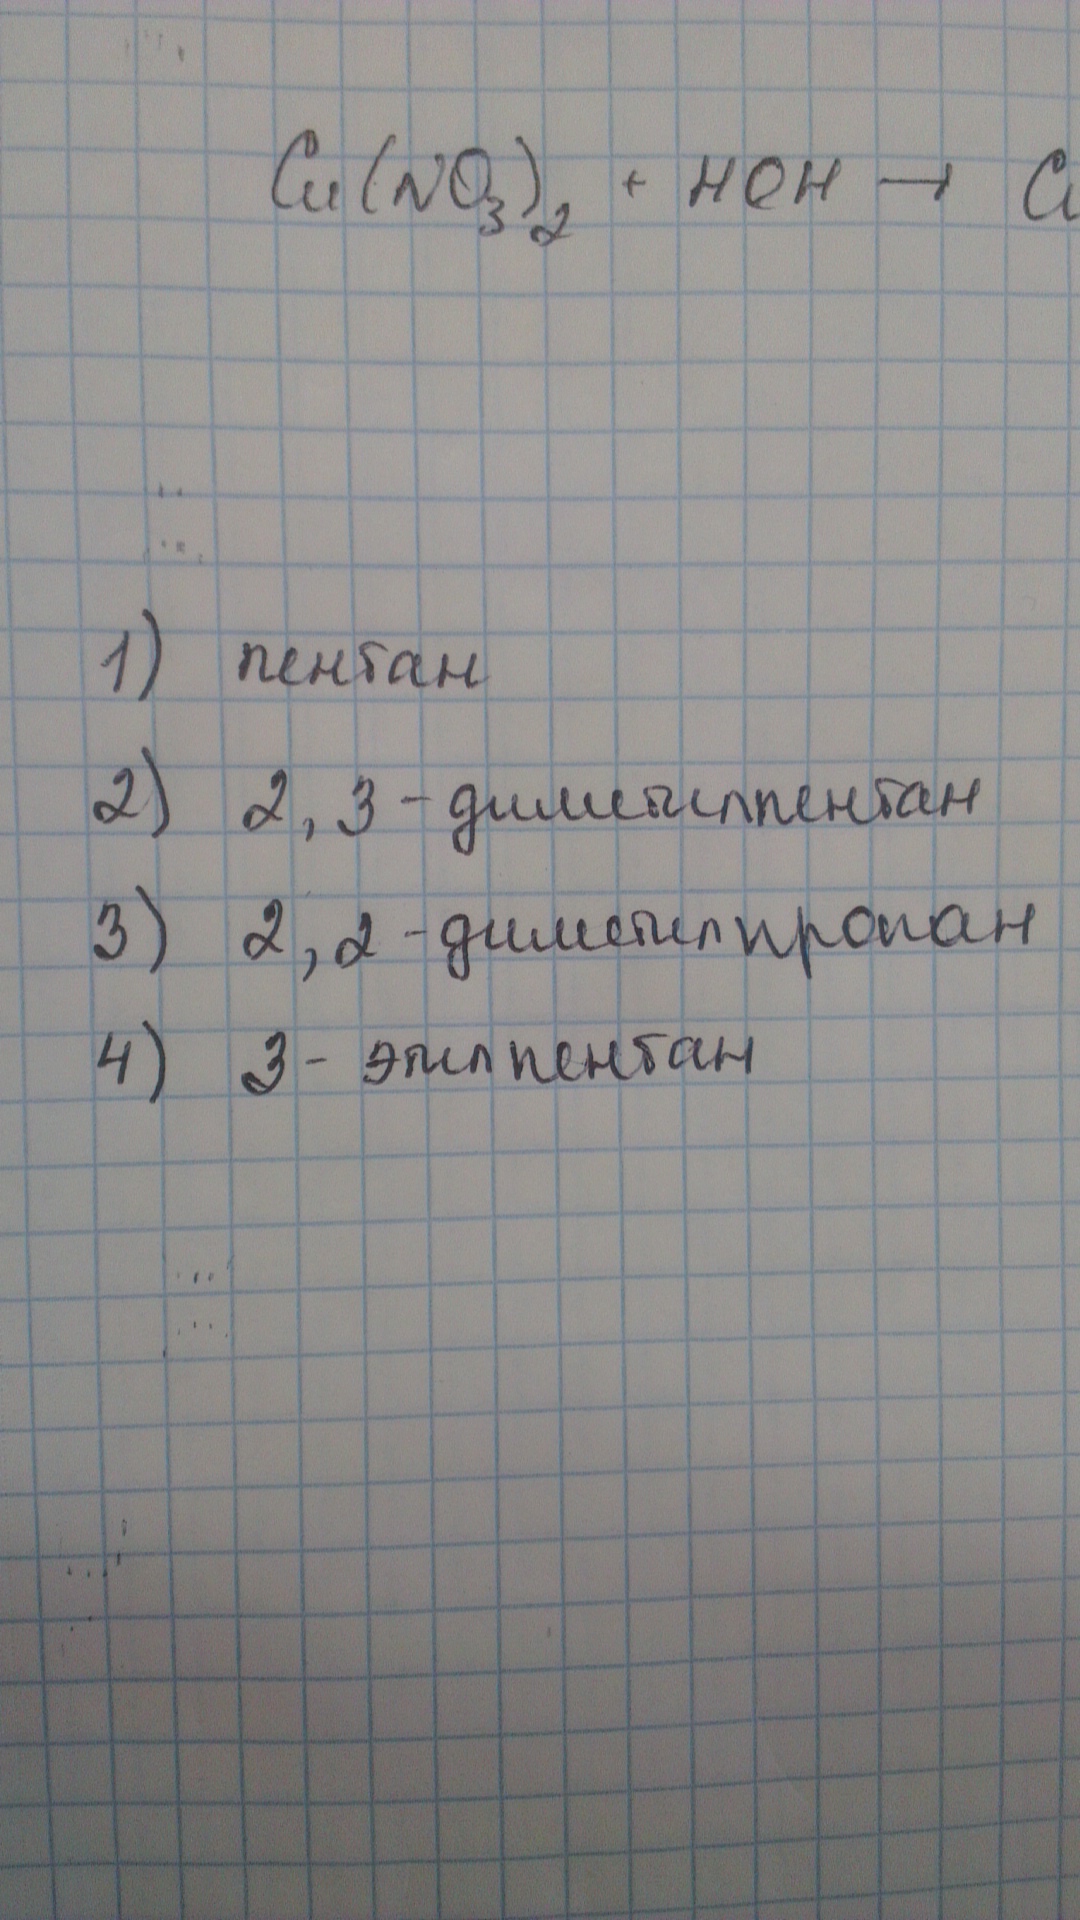 Cu(NO₃)₂ + HOH → Cu
1) пентан
2) 2,3-диметилпентан
3) 2,2-диметилпропан
4) 3-этилпентан